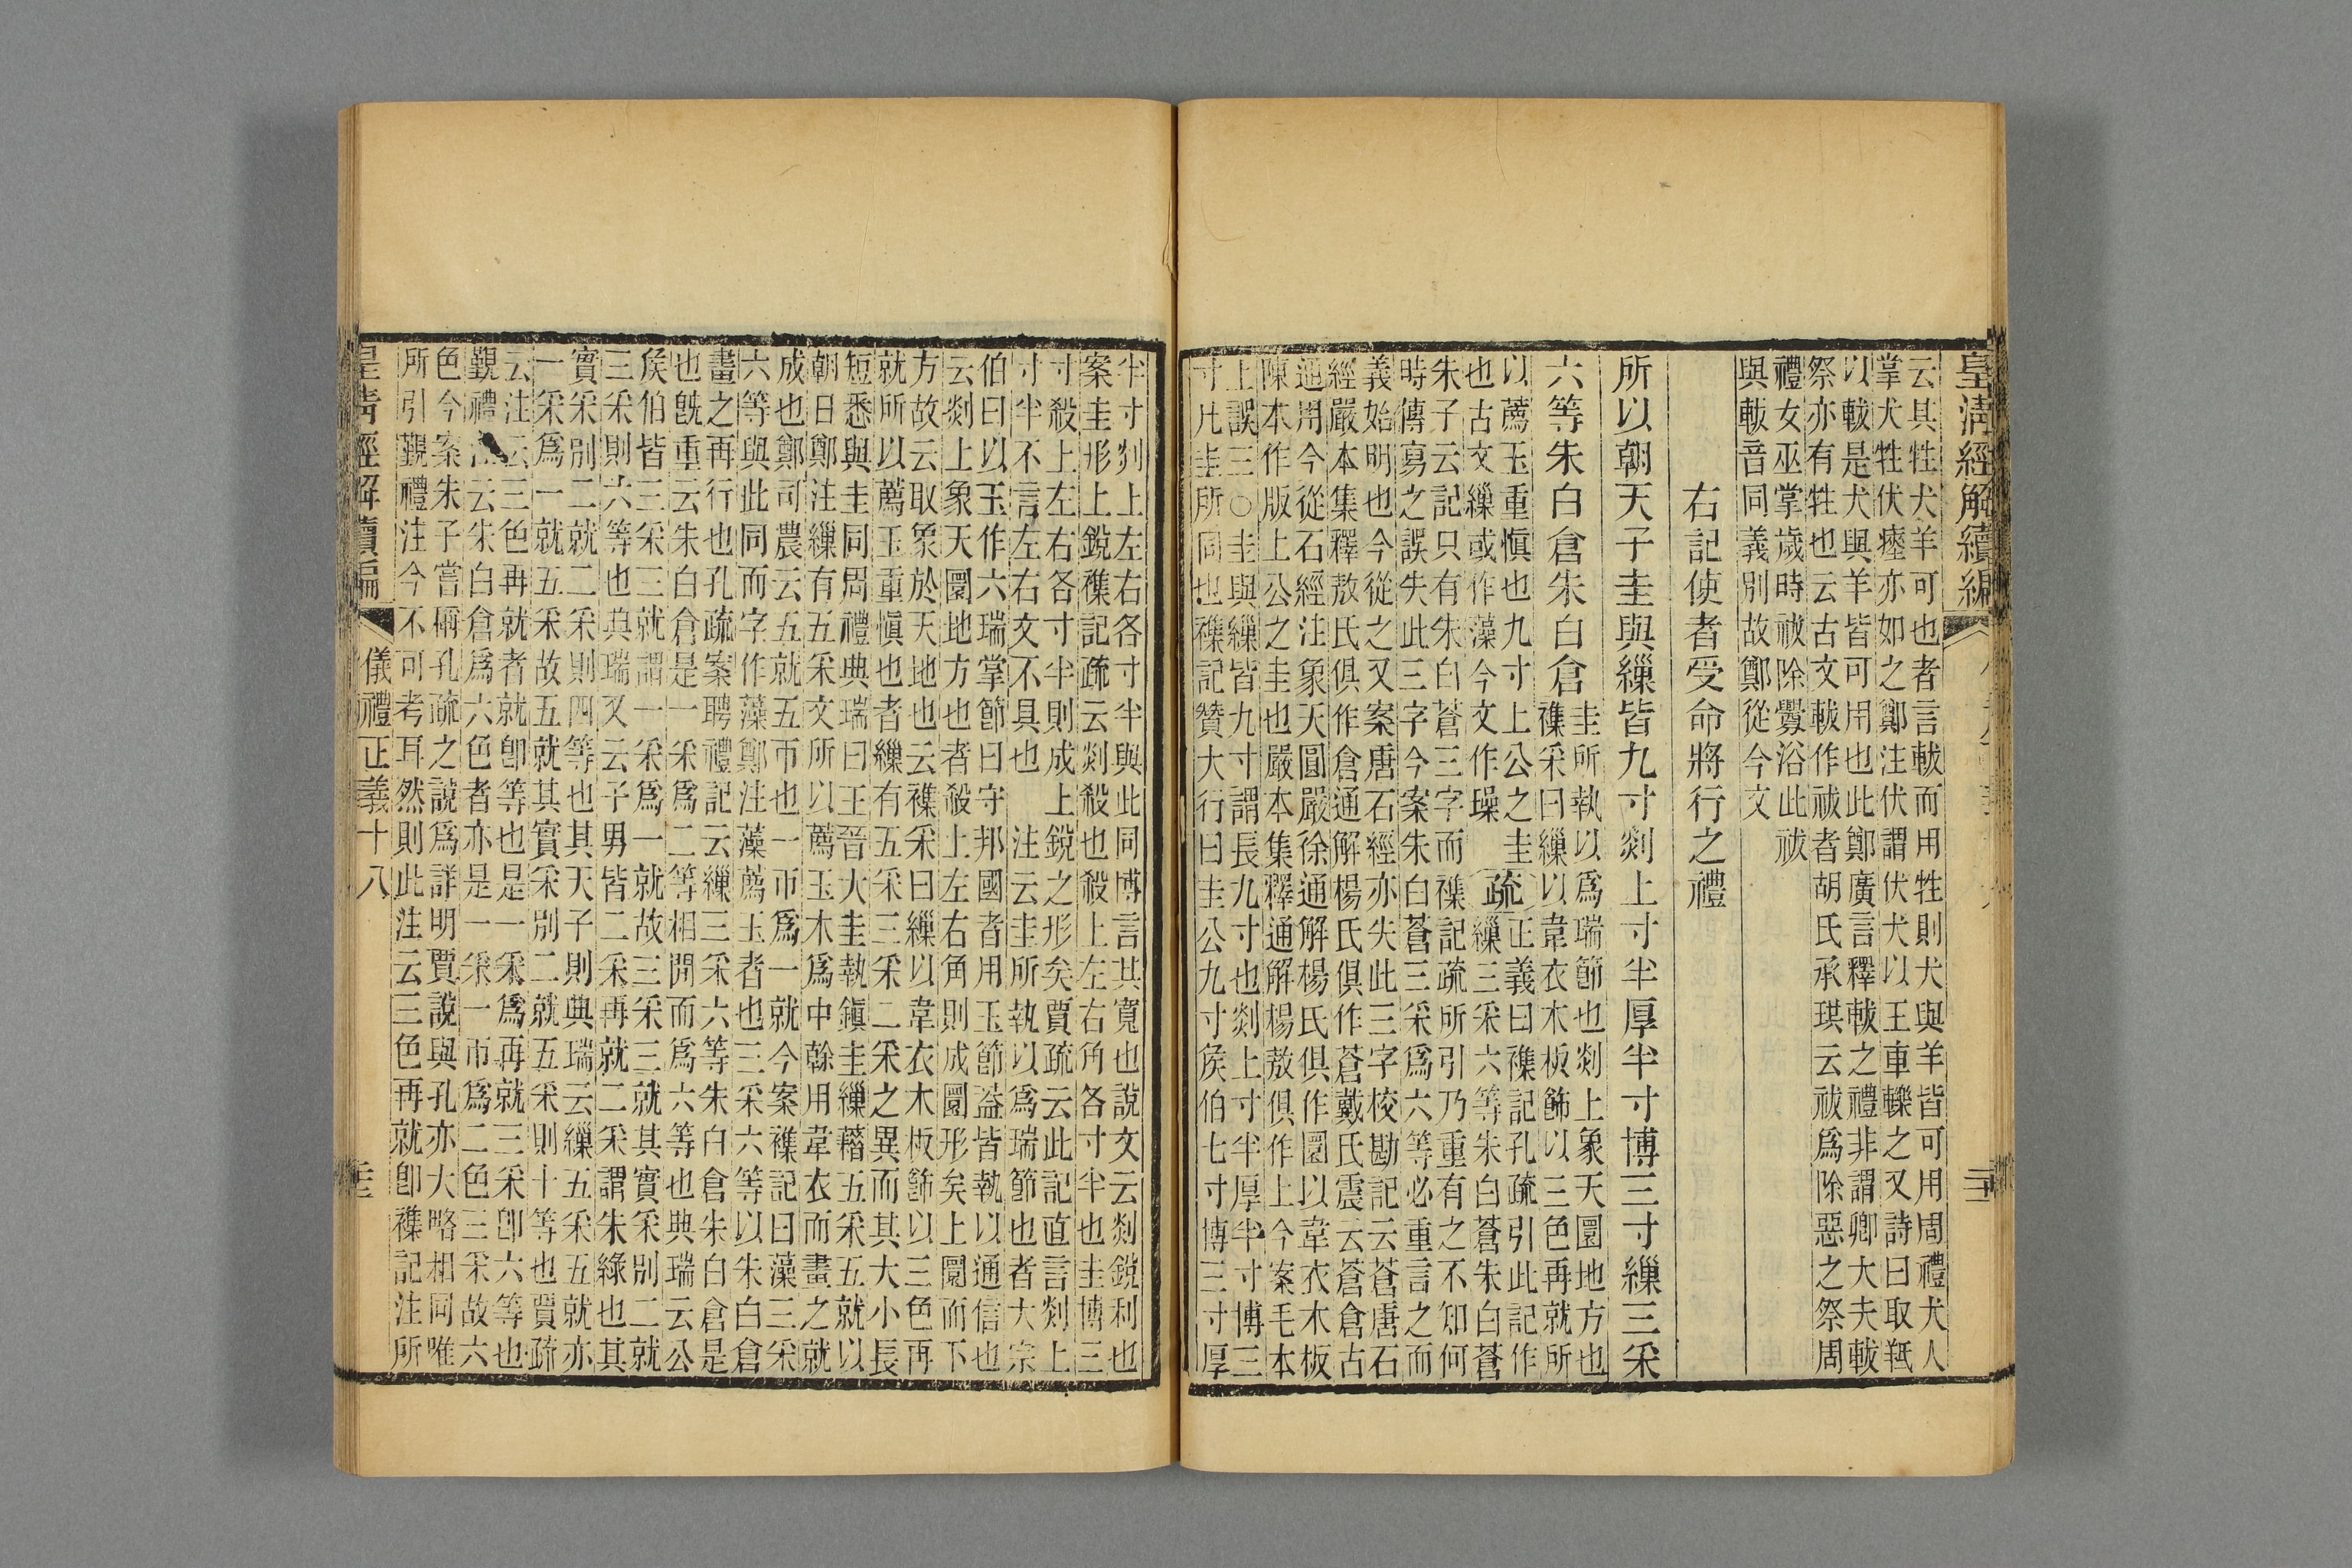 皇清經解續編
云其牲犬羊可也者言軷而用牲則犬與羊皆可用周禮犬人
掌犬牲伏瘞亦如之鄭注伏謂伏犬以王車轢之又詩曰取羝
以軷是犬與羊皆可用也此鄭廣言釋軷之禮非謂卿大夫軷
祭亦有牲也云古文軷作祓者胡氏承珙云祓爲除惡之祭周
禮女巫掌歲時祓除釁浴此祓
與軷音同義別故鄭從今文
右記使者受命將行之禮
所以朝天子圭與繅皆九寸剡上寸半厚半寸博三寸繅三采
六等朱白倉朱白倉
圭所執以爲瑞節也剡上象天圜地方也
襍采曰繅以韋衣木板飾以三色再就所
以薦玉重愼也九寸上公之圭
也古文繅或作藻今文作璪
疏
正義曰襍記孔疏引此記作
繅三采六等朱白蒼朱白蒼
朱子云記只有朱白蒼三字而襍記疏所引乃重有之不知何
時傳寫之誤失此三字今案朱白蒼三采爲六等必重言之而
義始明也今從之又案唐石經亦失此三字校勘記云蒼唐石
經嚴本集釋敖氏俱作倉通解楊氏俱作蒼戴氏震云蒼倉古
通用今從石經注象天圓嚴徐通解楊氏俱作圜以韋衣木板
陳本作版上公之圭也嚴本集釋通解楊敖俱作上今案毛本
上誤三○圭與繅皆九寸謂長九寸也剡上寸半厚半寸博三
寸凡圭所同也襍記贊大行曰圭公九寸侯伯七寸博三寸厚
半寸剡上左右各寸半與此同博言其寬也說文云剡銳利也
案圭形上銳襍記疏云剡殺也殺上左右角各寸半也圭博三
寸殺上左右各寸半則成上銳之形矣賈疏云此記直言剡上
寸半不言左右文不具也　注云圭所執以爲瑞節也者大宗
伯曰以玉作六瑞掌節曰守邦國者用玉節葢皆執以通信也
云剡上象天圜地方也者殺上左右角則成圜形矣上圜而下
方故云取象於天地也云襍采曰繅以韋衣木板飾以三色再
就所以薦玉重愼也者繅有五采三采二采之異而其大小長
短悉與圭同周禮典瑞曰王晉大圭執鎭圭繅藉五采五就以
朝日鄭注繅有五采文所以薦玉木爲中榦用韋衣而畫之就
成也鄭司農云五就五帀也一帀爲一就今案襍記曰藻三采
六等與此同而字作藻鄭注藻薦玉者也三采六等以朱白倉
畫之再行也孔疏案聘禮記云繅三采六等朱白倉朱白倉是
也旣重云朱白倉是一采爲二等相閒而爲六等也典瑞云公
侯伯皆三采三就謂一采爲一就故三采三就其實采別二就
三采則六等也典瑞又云子男皆二采再就二采謂朱綠也其
實采別二就二采則四等也其天子則典瑞云繅五采五就亦
一采爲一就五采故五就其實采別二就五采則十等也賈疏
云注云三色再就者就卽等也是一采爲再就三采卽六等也
覲禮注云朱白倉爲六色者亦是一采一帀爲二色三采故六
色今案朱子嘗稱孔疏之說爲詳明賈說與孔亦大略相同唯
所引覲禮注今不可考耳然則此注云三色再就卽襍記注所
皇清經解續編
儀禮正義十八